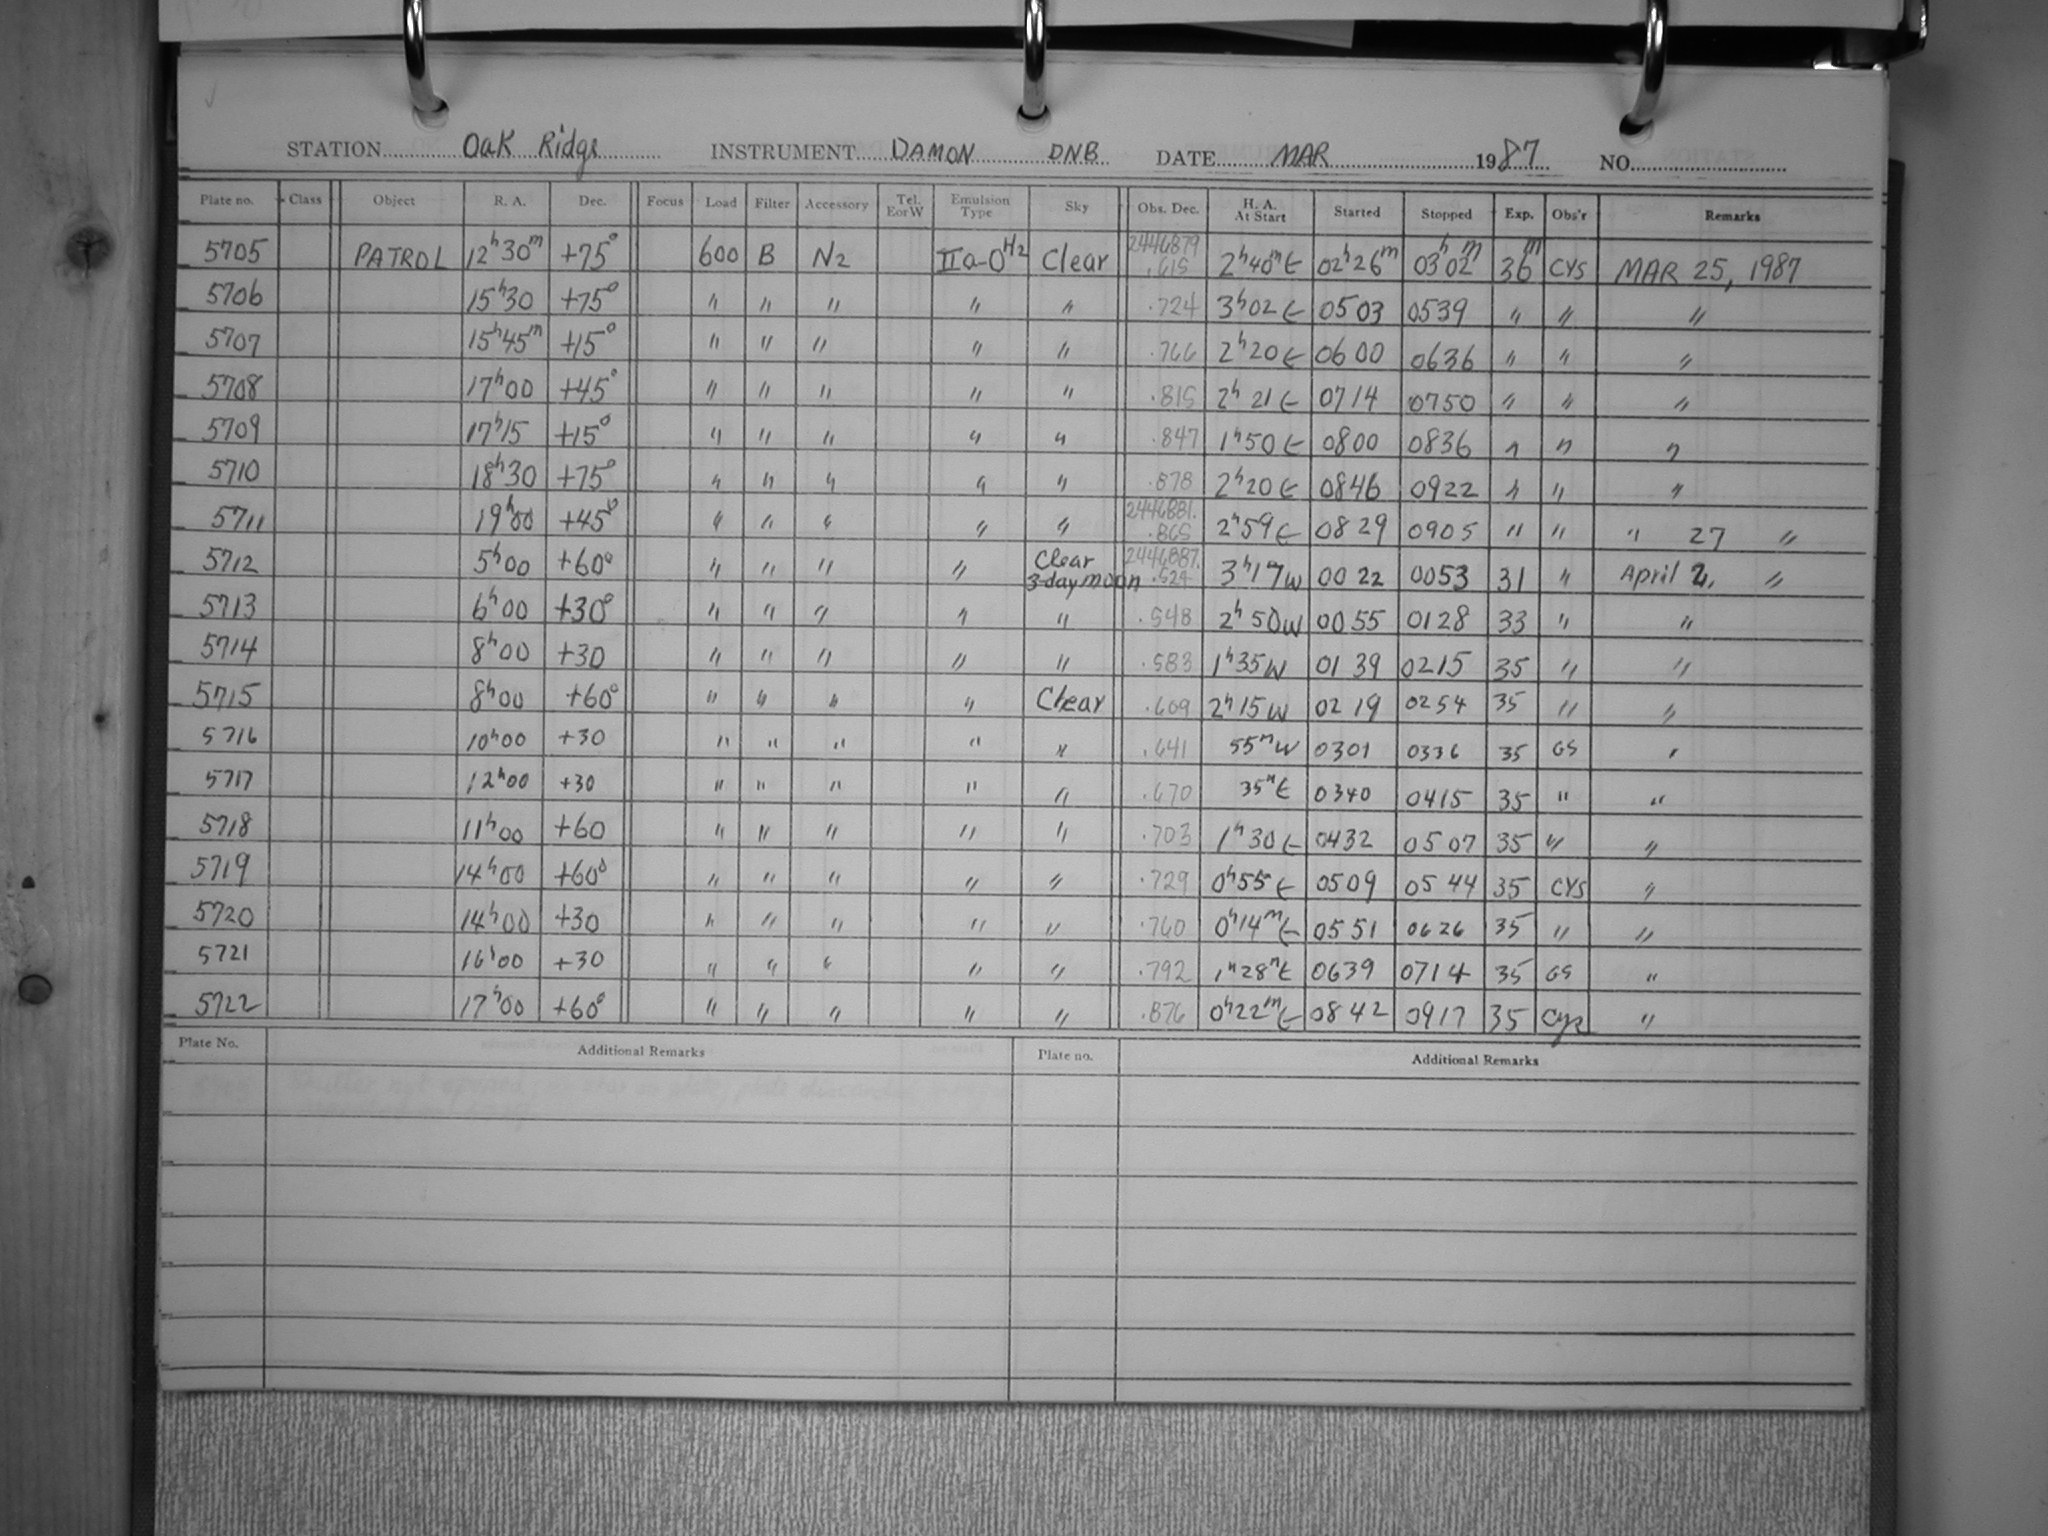 STATION Oak Ridge INSTRUMENT DAMON DNB DATE MAR 1987 NO.
Plate no. Class Object R. A. Dec. Focus Load Filter Accessory Tel. E or W Emulsion Type Sky Obs. Dec. H. A. At Start Started Stopped Exp. Obs'r Remarks
5705 PATROL 12h30m +75° 600 B N2 IIa-O H2 Clear 2446879 .615 2h40m E 02h26m 03h02m 36m CYS MAR 25, 1987
5706 15h30 +75° " " " " " .724 3h02 E 0503 0539 " " "
5707 15h45m +15° " " " " " .766 2h20 E 0600 0636 " " "
5708 17h00 +45° " " " " " .815 2h21 E 0714 0750 " " "
5709 17h15 +15° " " " " " .847 1h50 E 0800 0836 " " "
5710 18h30 +75° " " " " " .878 2h20 E 0846 0922 " " "
5711 19h00 +45° " " " " " 2446881. .865 2h59 E 0829 0905 " " " 27 "
5712 5h00 +60° " " " " Clear 3-day moon 2446887. .524 3h17 W 0022 0053 31 " April 2, "
5713 6h00 +30° " " " " " .548 2h50 W 0055 0128 33 " "
5714 8h00 +30 " " " " " .583 1h35 W 0139 0215 35 " "
5715 8h00 +60° " " " " Clear .609 2h15 W 0219 0254 35 " "
5716 10h00 +30 " " " " " .641 55m W 0301 0336 35 GS "
5717 12h00 +30 " " " " " .670 35m E 0340 0415 35 " "
5718 11h00 +60 " " " " " .703 1h30 E 0432 0507 35 " "
5719 14h00 +60° " " " " " .729 0h55 E 0509 0544 35 CYS "
5720 14h00 +30 " " " " " .760 0h14m E 0551 0626 35 " "
5721 16h00 +30 " " " " " .792 1h28m E 0639 0714 35 GS "
5722 17h00 +60° " " " " " .876 0h22m E 0842 0917 35 CYS "
Plate No. Additional Remarks Plate no. Additional Remarks